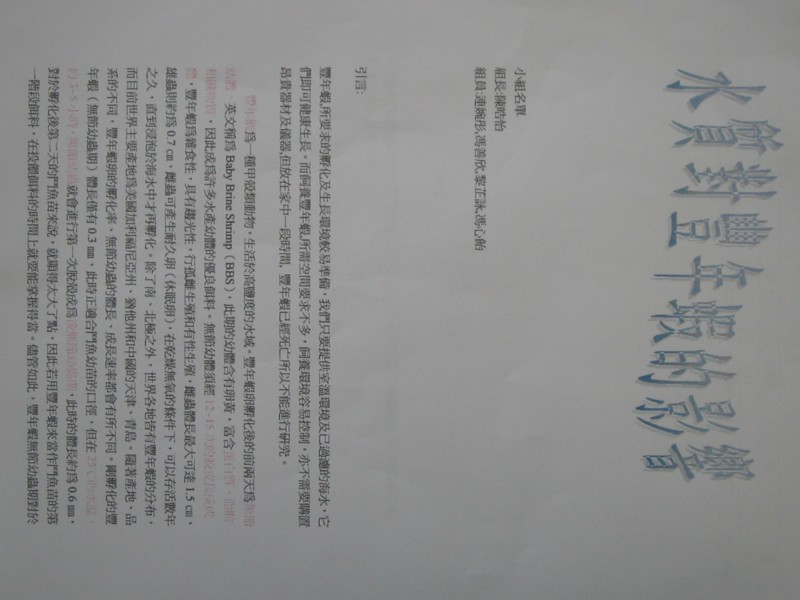 水質對豐年蝦的影響
小組名單
組長:陳晧怡
組員:連婉彤,馮善欣,黎芷詠,馮心飴
引言:
豐年蝦,所要求的孵化及生長環境較易準備，我們只要提供室溫環境及已過濾的海水，它
們即可健康生長。而飼養豐年蝦,所需空間要求不多，飼養環境容易控制，亦不需要購置
昂貴器材及儀器,但放在家中一段時間, 豐年蝦已經死亡所以不能進行研究。
豐年蝦為一種甲殼類動物，生活於高鹽度的水域。豐年蝦卵孵化後的前兩天為無節
幼體，英文稱為 Baby Brine Shrimp（BBS），此期的幼體含有卵黃，富含蛋白質、脂肪
，因此成為許多水產幼體的優良餌料。無節幼體須經 12~15 次的蛻皮長成成
體，豐年蝦為雜食性，具有趨光性，行孤雌生殖和有性生殖，雌蟲體長最大可達 1.5 cm，
雄蟲則約為 0.7 cm，雌蟲可產生耐久卵（休眠卵），在乾燥無氧的條件下，可以存活數年
之久，直到浸泡於海水中才再孵化。除了南、北極之外，世界各地皆有豐年蝦的分布，
而目前世界主要產地為美國加利福尼亞州、猶他州和中國的天津、青島。隨著產地、品
系的不同，豐年蝦卵的孵化率、無節幼蟲的體長、成長速率都會有所不同。剛孵化的豐
年蝦（無節幼蟲期）體長僅有 0.3 mm，此時正適合鬥魚幼苗的口徑，但在 25℃的水溫，
約 3~5 小時，無節幼蟲就會進行第一次脫殼成為後無節幼蟲期，此時的體長約為 0.6 mm，
對於孵化後第二天的鬥魚苗來說，就顯得大大了點，因此若用豐年蝦來當作鬥魚苗的第
一階段餌料，在投體餌料的時間上就要能掌握得當。儘管如此，豐年蝦無節幼蟲期對於